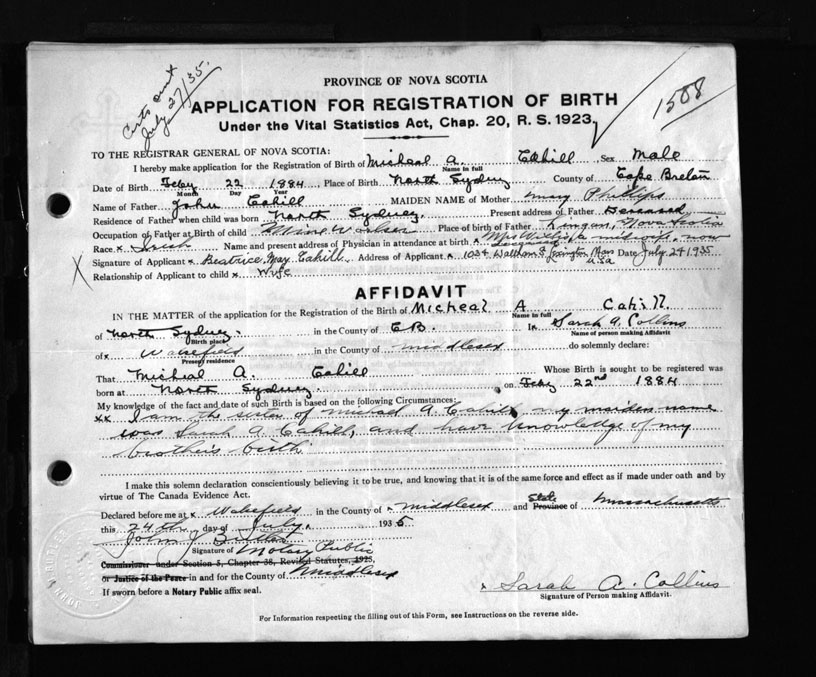 Certs sent
July 27/35.
1588
PROVINCE OF NOVA SCOTIA
APPLICATION FOR REGISTRATION OF BIRTH
Under the Vital Statistics Act, Chap. 20, R. S. 1923.
TO THE REGISTRAR GENERAL OF NOVA SCOTIA:
I hereby make application for the Registration of Birth of Micheal A. Cahill Sex Male
Name in full
Date of Birth Feby 22 1884 Place of Birth North Sydney County of Cape Breton
Month Day Year
Name of Father John Cahill MAIDEN NAME of Mother Mary Phillips
Residence of Father when child was born North Sydney. Present address of Father Deceased
Occupation of Father at Birth of child Mine Worker Place of birth of Father Lingan, Nova Scotia
Race x Irish Name and present address of Physician in attendance at birth x Mrs Willis, a midwife, now
deceased
Signature of Applicant x Beatrice May Cahill Address of Applicant x 1034 Waltham St Lexington Mass Date July 24 1935
U.S.A
X
Relationship of Applicant to child x Wife
AFFIDAVIT
IN THE MATTER of the application for the Registration of the Birth of Micheal A Cahill
Name in full
of North Sydney. in the County of C.B. I x Sarah A. Collins
Birth place Name of person making Affidavit
of x Wakefield in the County of Middlesex do solemnly declare:
Present residence
That Micheal A. Cahill Whose Birth is sought to be registered was
born at North Sydney. on Feby 22nd 1884
My knowledge of the fact and date of such Birth is based on the following Circumstances:
xx I am the sister of Michael A. Cahill my maiden name
was Sarah A Cahill, and have knowledge of my
brothers birth
I make this solemn declaration conscientiously believing it to be true, and knowing that it is of the same force and effect as if made under oath and by
virtue of The Canada Evidence Act.
Declared before me at x Wakefield in the County of x Middlesex and State Province of Massachusetts
this 24th day of July. 1935
John J
Signature of Notary Public
Commissioner under Section 5, Chapter 38, Revised Statutes, 1923,
or Justice of the Peace in and for the County of Middlesex
If sworn before a Notary Public affix seal.
x Sarah A. Collins
Signature of Person making Affidavit.
For Information respecting the filling out of this Form, see Instructions on the reverse side.